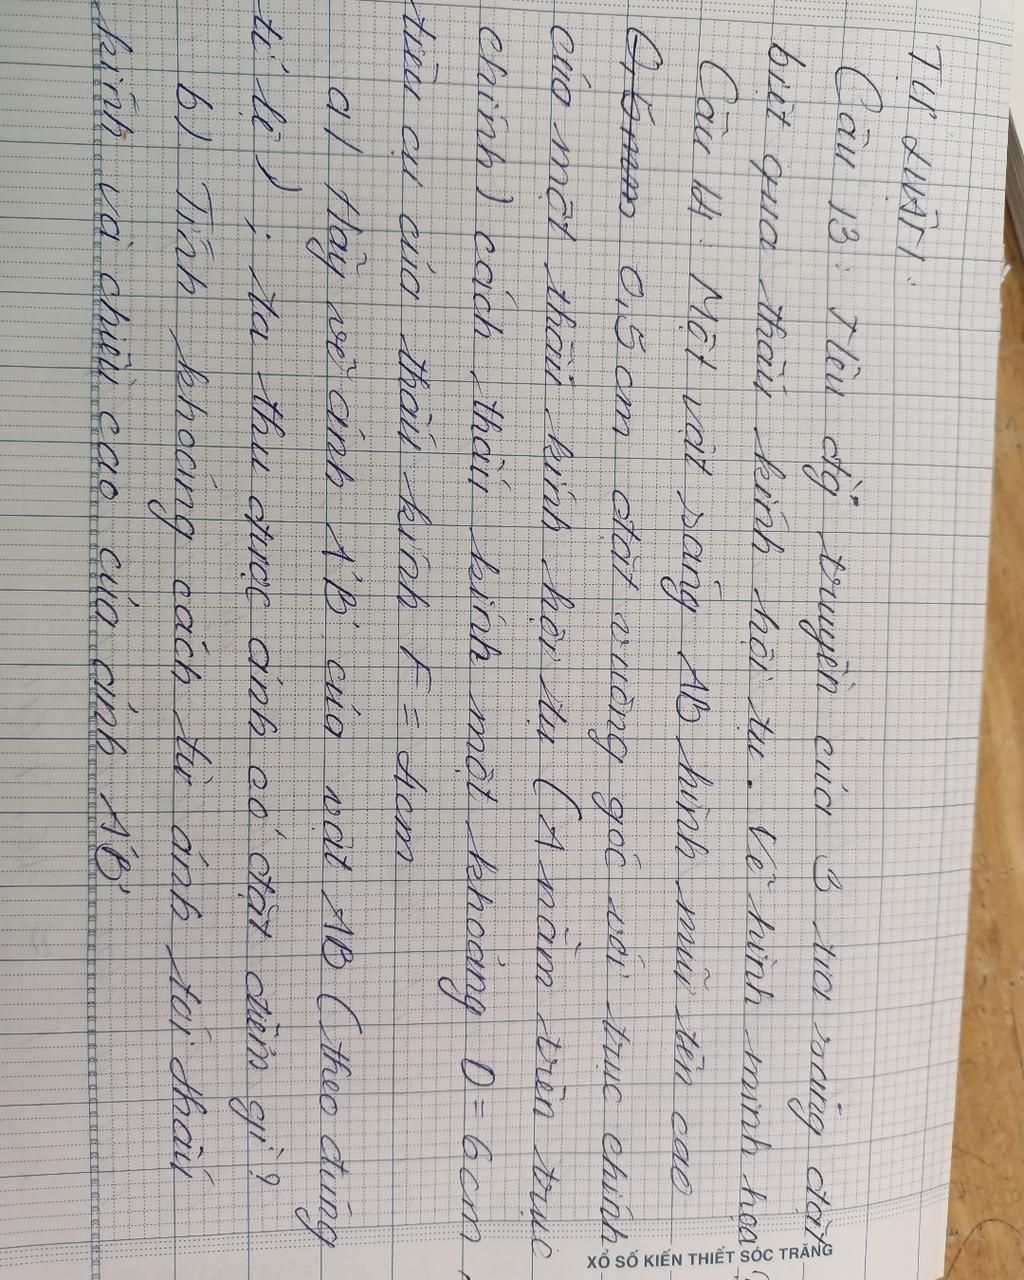 TỰ LUẬN:
Câu 13: Nêu đg̉ truyền của 3 tia sáng đặt
biệt qua thấu kính hội tụ. Vẽ hình minh hoạ
Câu 14. Một vật sáng AB hình mũi tên cao
0,5 cm đặt vuông góc với trục chính
của một thấu kính hội tụ (A nằm trên trục
chính) cách thấu kính một khoảng D = 6cm,
tiêu cự của thấu kính F = 4cm
a) Hãy vẽ ảnh A'B' của vật AB (theo đúng
tỉ lệ); ta thu được ảnh có đặt điểm gì?
b) Tính khoảng cách từ ảnh tới thấu
kính và chiều cao của ảnh A'B'
XỔ SỐ KIẾN THIẾT SÓC TRĂNG